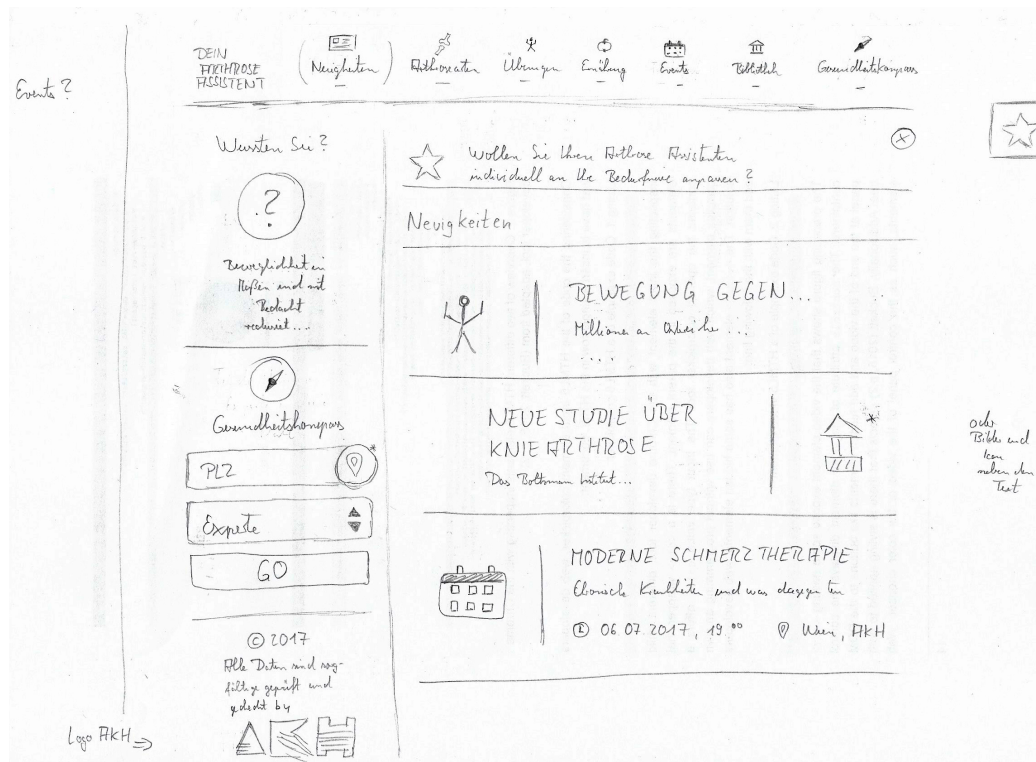 Events ?
DEIN
ARTHROSE
ASSISTENT
Neuigkeiten
Arthrosearten
Übungen
Ernährung
Events
Bibliothek
Gesundheitskompass
Wussten Sie ?
?
Beweglichkeit in
und mit
Bedacht
....
Gesundheitskompass
PLZ
*
Experte
GO
© 2017
Alle Daten sind sorg-
fältig geprüft und
by
Logo AKH
X
Wollen Sie Ihren Arthrose Assistenten
individuell an Ihre Bedürfnisse anpassen ?
Neuigkeiten
BEWEGUNG GEGEN...
Millionen an ...
....
NEUE STUDIE ÜBER
KNIE ARTHROSE
Das Institut...
*
MODERNE SCHMERZTHERAPIE
Krankheiten und was dagegen tun
06.07.2017, 19 00
Wien, AKH
oder
Bilder und
Icon
neben dem
Text